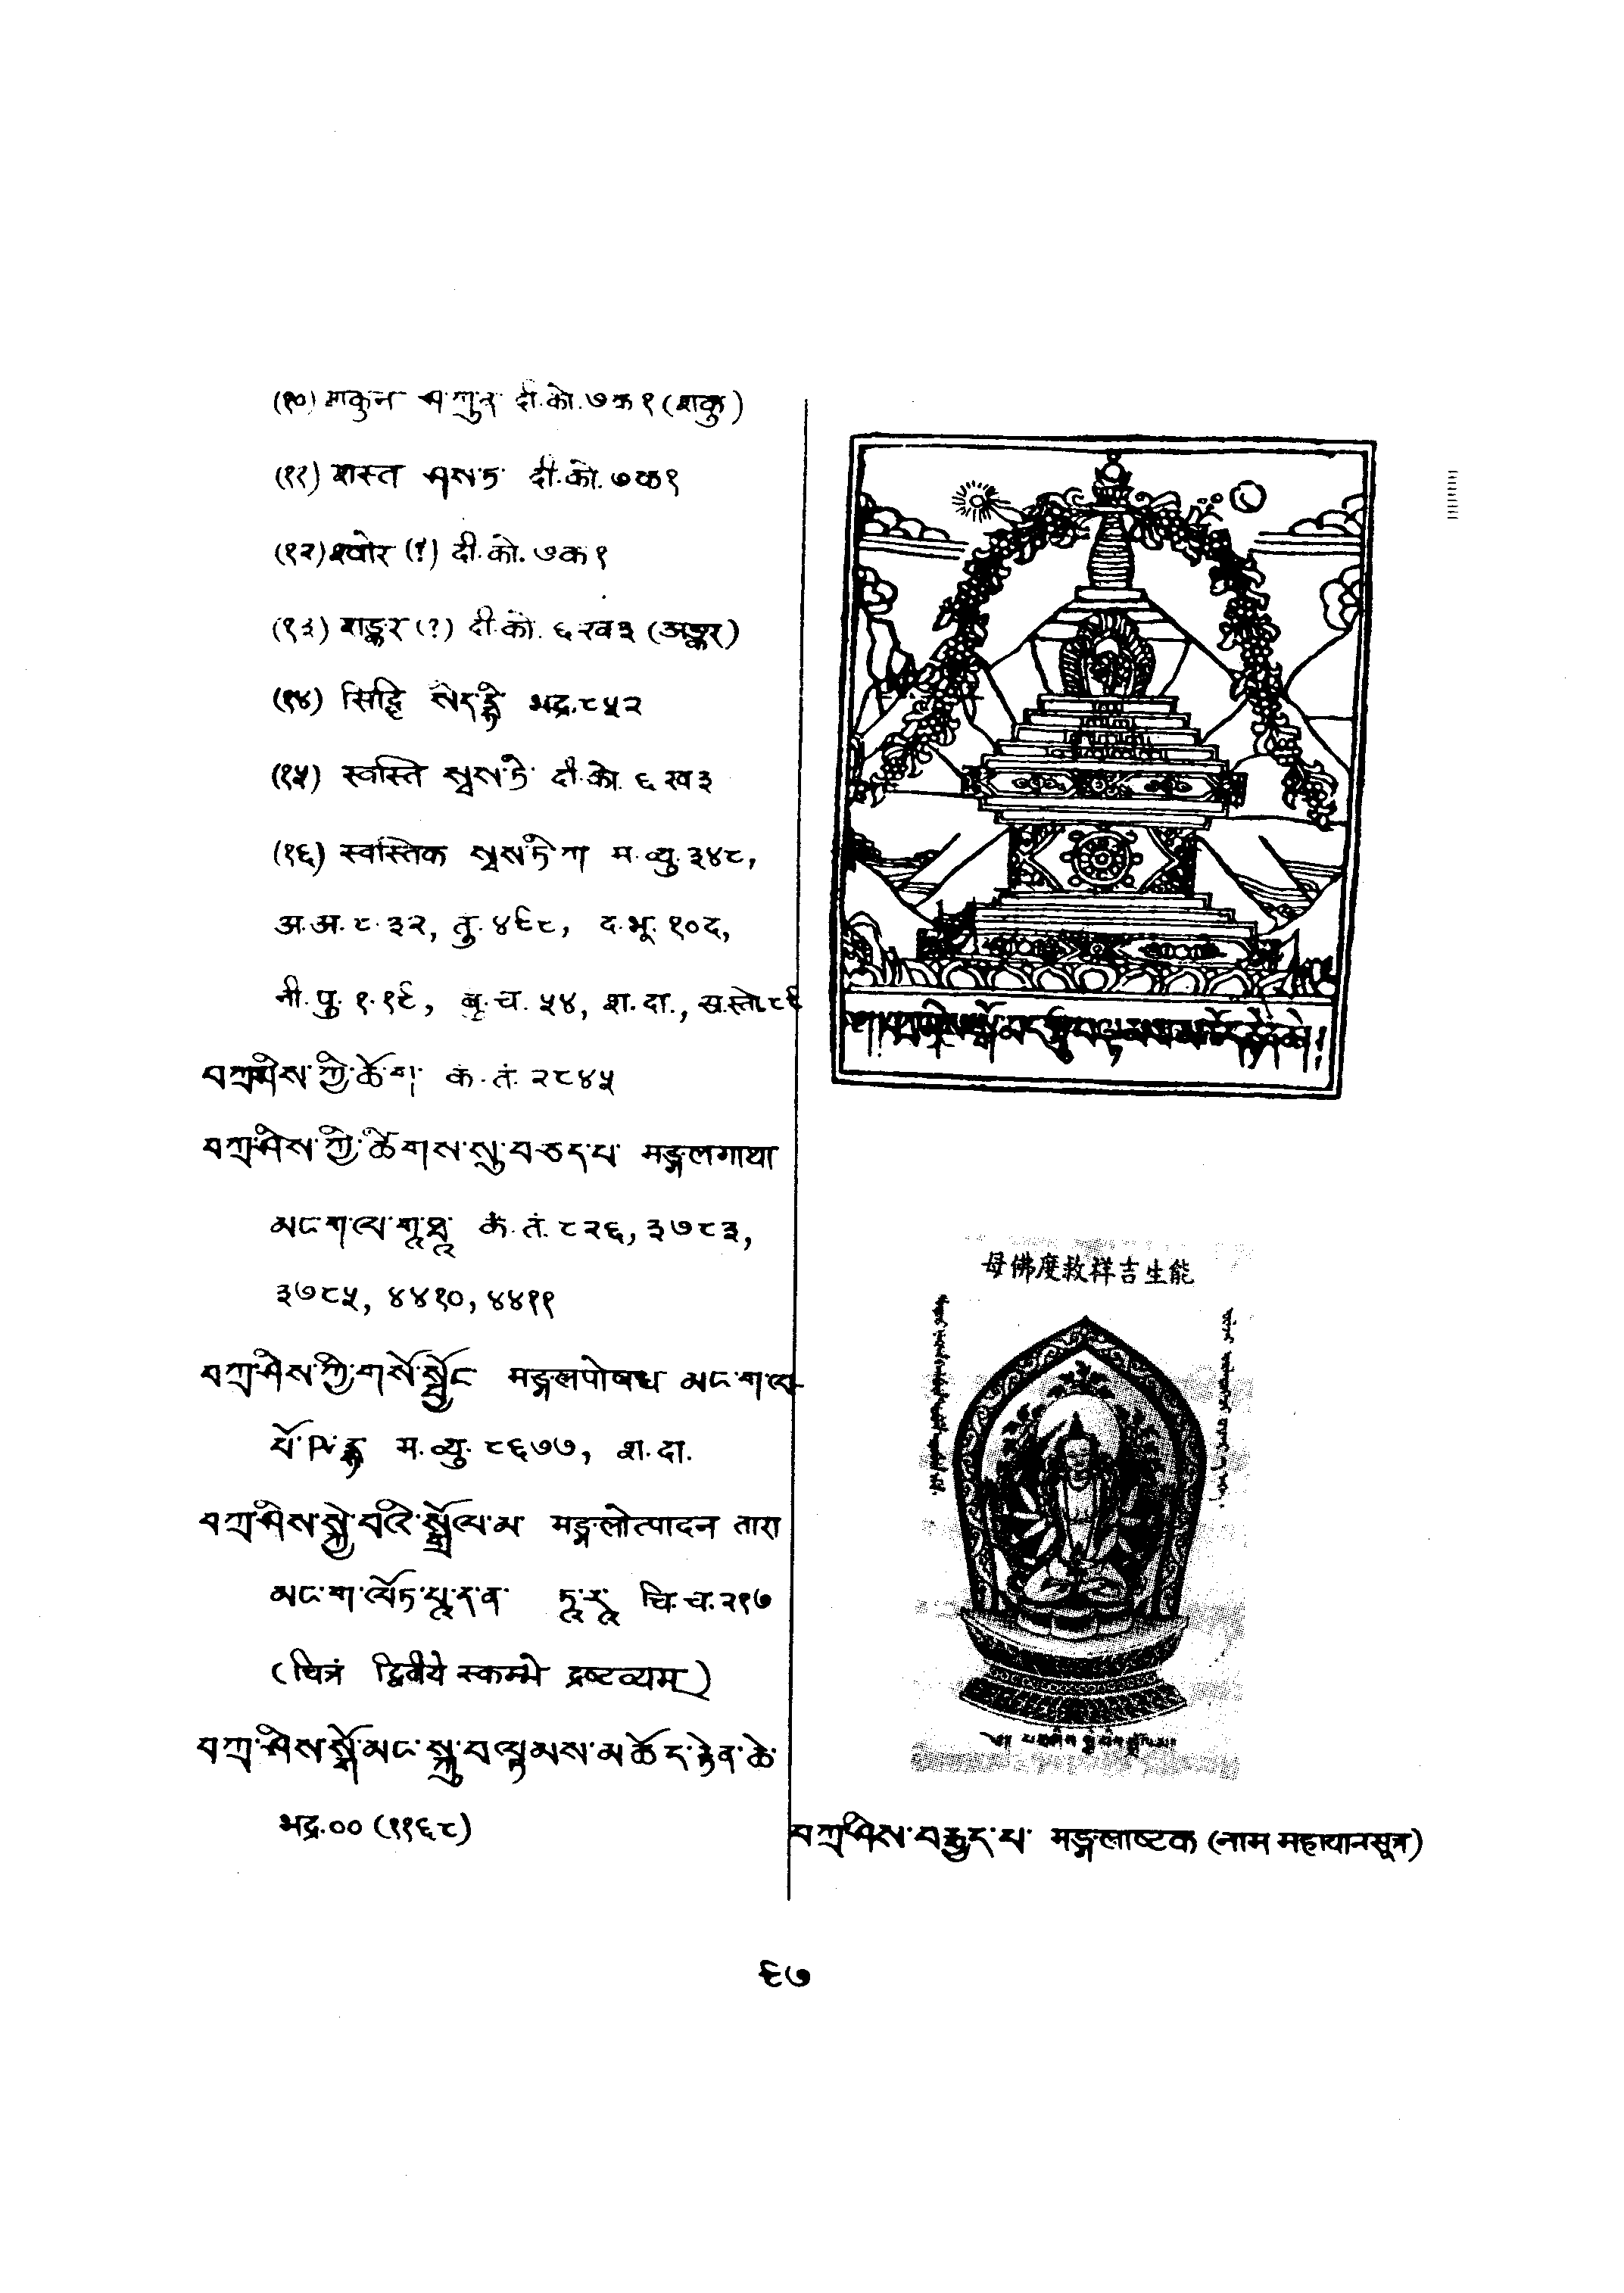 (१०) शकुन ཤ་ཀུན་ दी.को.७क१ (शकु)
(११) शस्त ཤས་ཏ་ दी.को.७क१
(१२) श्वोर (?) दी.को.७क१
(१३) शङ्कर (?) दी.को.६ख३ (अङ्कर)
(१४) सिद्धि སིད་དྷི་ भद्र.८५२
(१५) स्वस्ति སྭས་ཏི་ दी.को.६ख३
(१६) स्वस्तिक སྭས་ཏི་ཀ། म.व्यु.३४८,
अ.अ.८.३२, तु.४९८, द.भू.१०द,
नी.पु.१.१९, बृ.च.५४, श.दा.,
བཀྲ་ཤིས་ཀྱི་ཚོ་ག་ कं.तं.२८४५
བཀྲ་ཤིས་ཀྱི་ཚིགས་སུ་བཅད་པ་ मङ्गलगाथा
མང་ག་ལ་གཱ་ཐཱ कं.तं.८२६, ३७८३,
३७८५, ४४१०, ४४११
བཀྲ་ཤིས་ཀྱི་གསོ་སྦྱོང मङ्गलपोषध མང་ག་ལ་
པོ་ཥ་དྷ म.व्यु.८६७७, श.दा.
བཀྲ་ཤིས་སྐྱེ་བའི་སྒྲོལ་མ मङ्गलोत्पादन तारा
མང་ག་ལོཏ་པཱ་ད་ན་ ཏཱ་རཱ चि.च.२१७
(चित्रं द्वितीये स्कम्भे द्रष्टव्यम्)
བཀྲ་ཤིས་སྒོ་མང་སྐུ་བལྟམས་མཆོད་རྟེན་ཆེ་
भद्र.०० (११६८)
母佛度救祥吉生能
བཀྲ་ཤིས་བརྒྱད་པ་ मङ्गलाष्टक (नाम महायानसूत्र)
९७